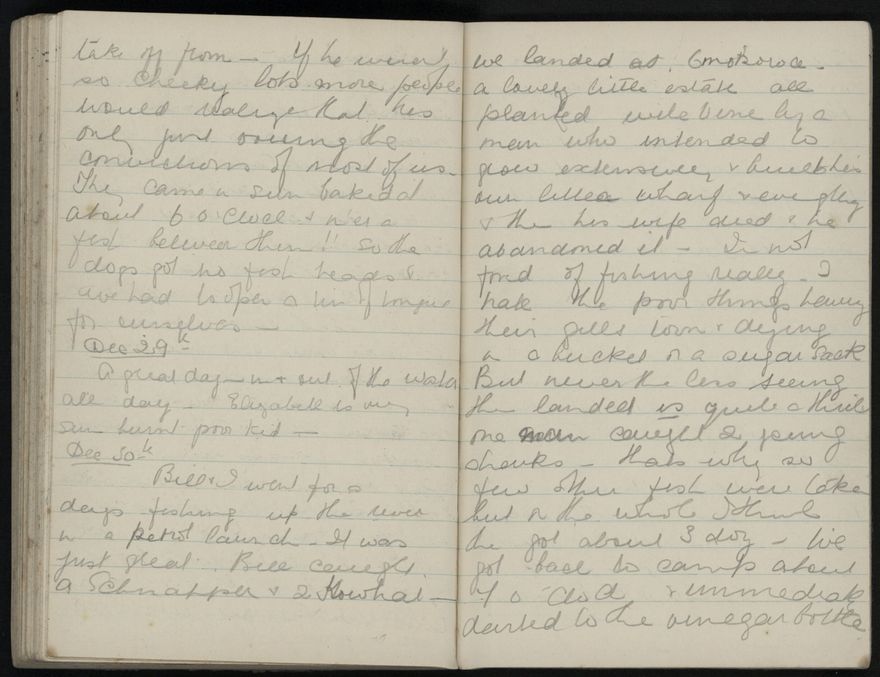 take off from – If he weren't
so cheeky lots more people
would realize that he's
only just voicing the
convictions of most of us –
They came in sun baked at
about 6 o'clock & n'er a
fish between them!! So the
dogs got no fish heads &
we had to open a tin of tongue
for ourselves –
Dec 29th
A great day – in & out of the water
all day – Elizabeth is very
sun burnt poor kid –
Dec 30th
Bill & I went for a
days fishing up the river
in a petrol launch – It was
just great. Bill caught
a Schnapper & 2 Kowhai –
we landed at
a lovely little estate all
planted with vine by a
man who intended to
grow extensively & built his
own little wharf & everything
& then his wife died & he
abandoned it – I'm not
fond of fishing really – I
hate the poor things having
their gills torn & dying
in a bucket or a sugar sack
But never the less seeing
them landed is quite a thrill
one man caught 2 young
sharks – thats why so
few other fish were taken
but on the whole I think
he got about 3 doz – We
got back to camp about
7 o'clock & immediately
darted to the vinegar bottle.